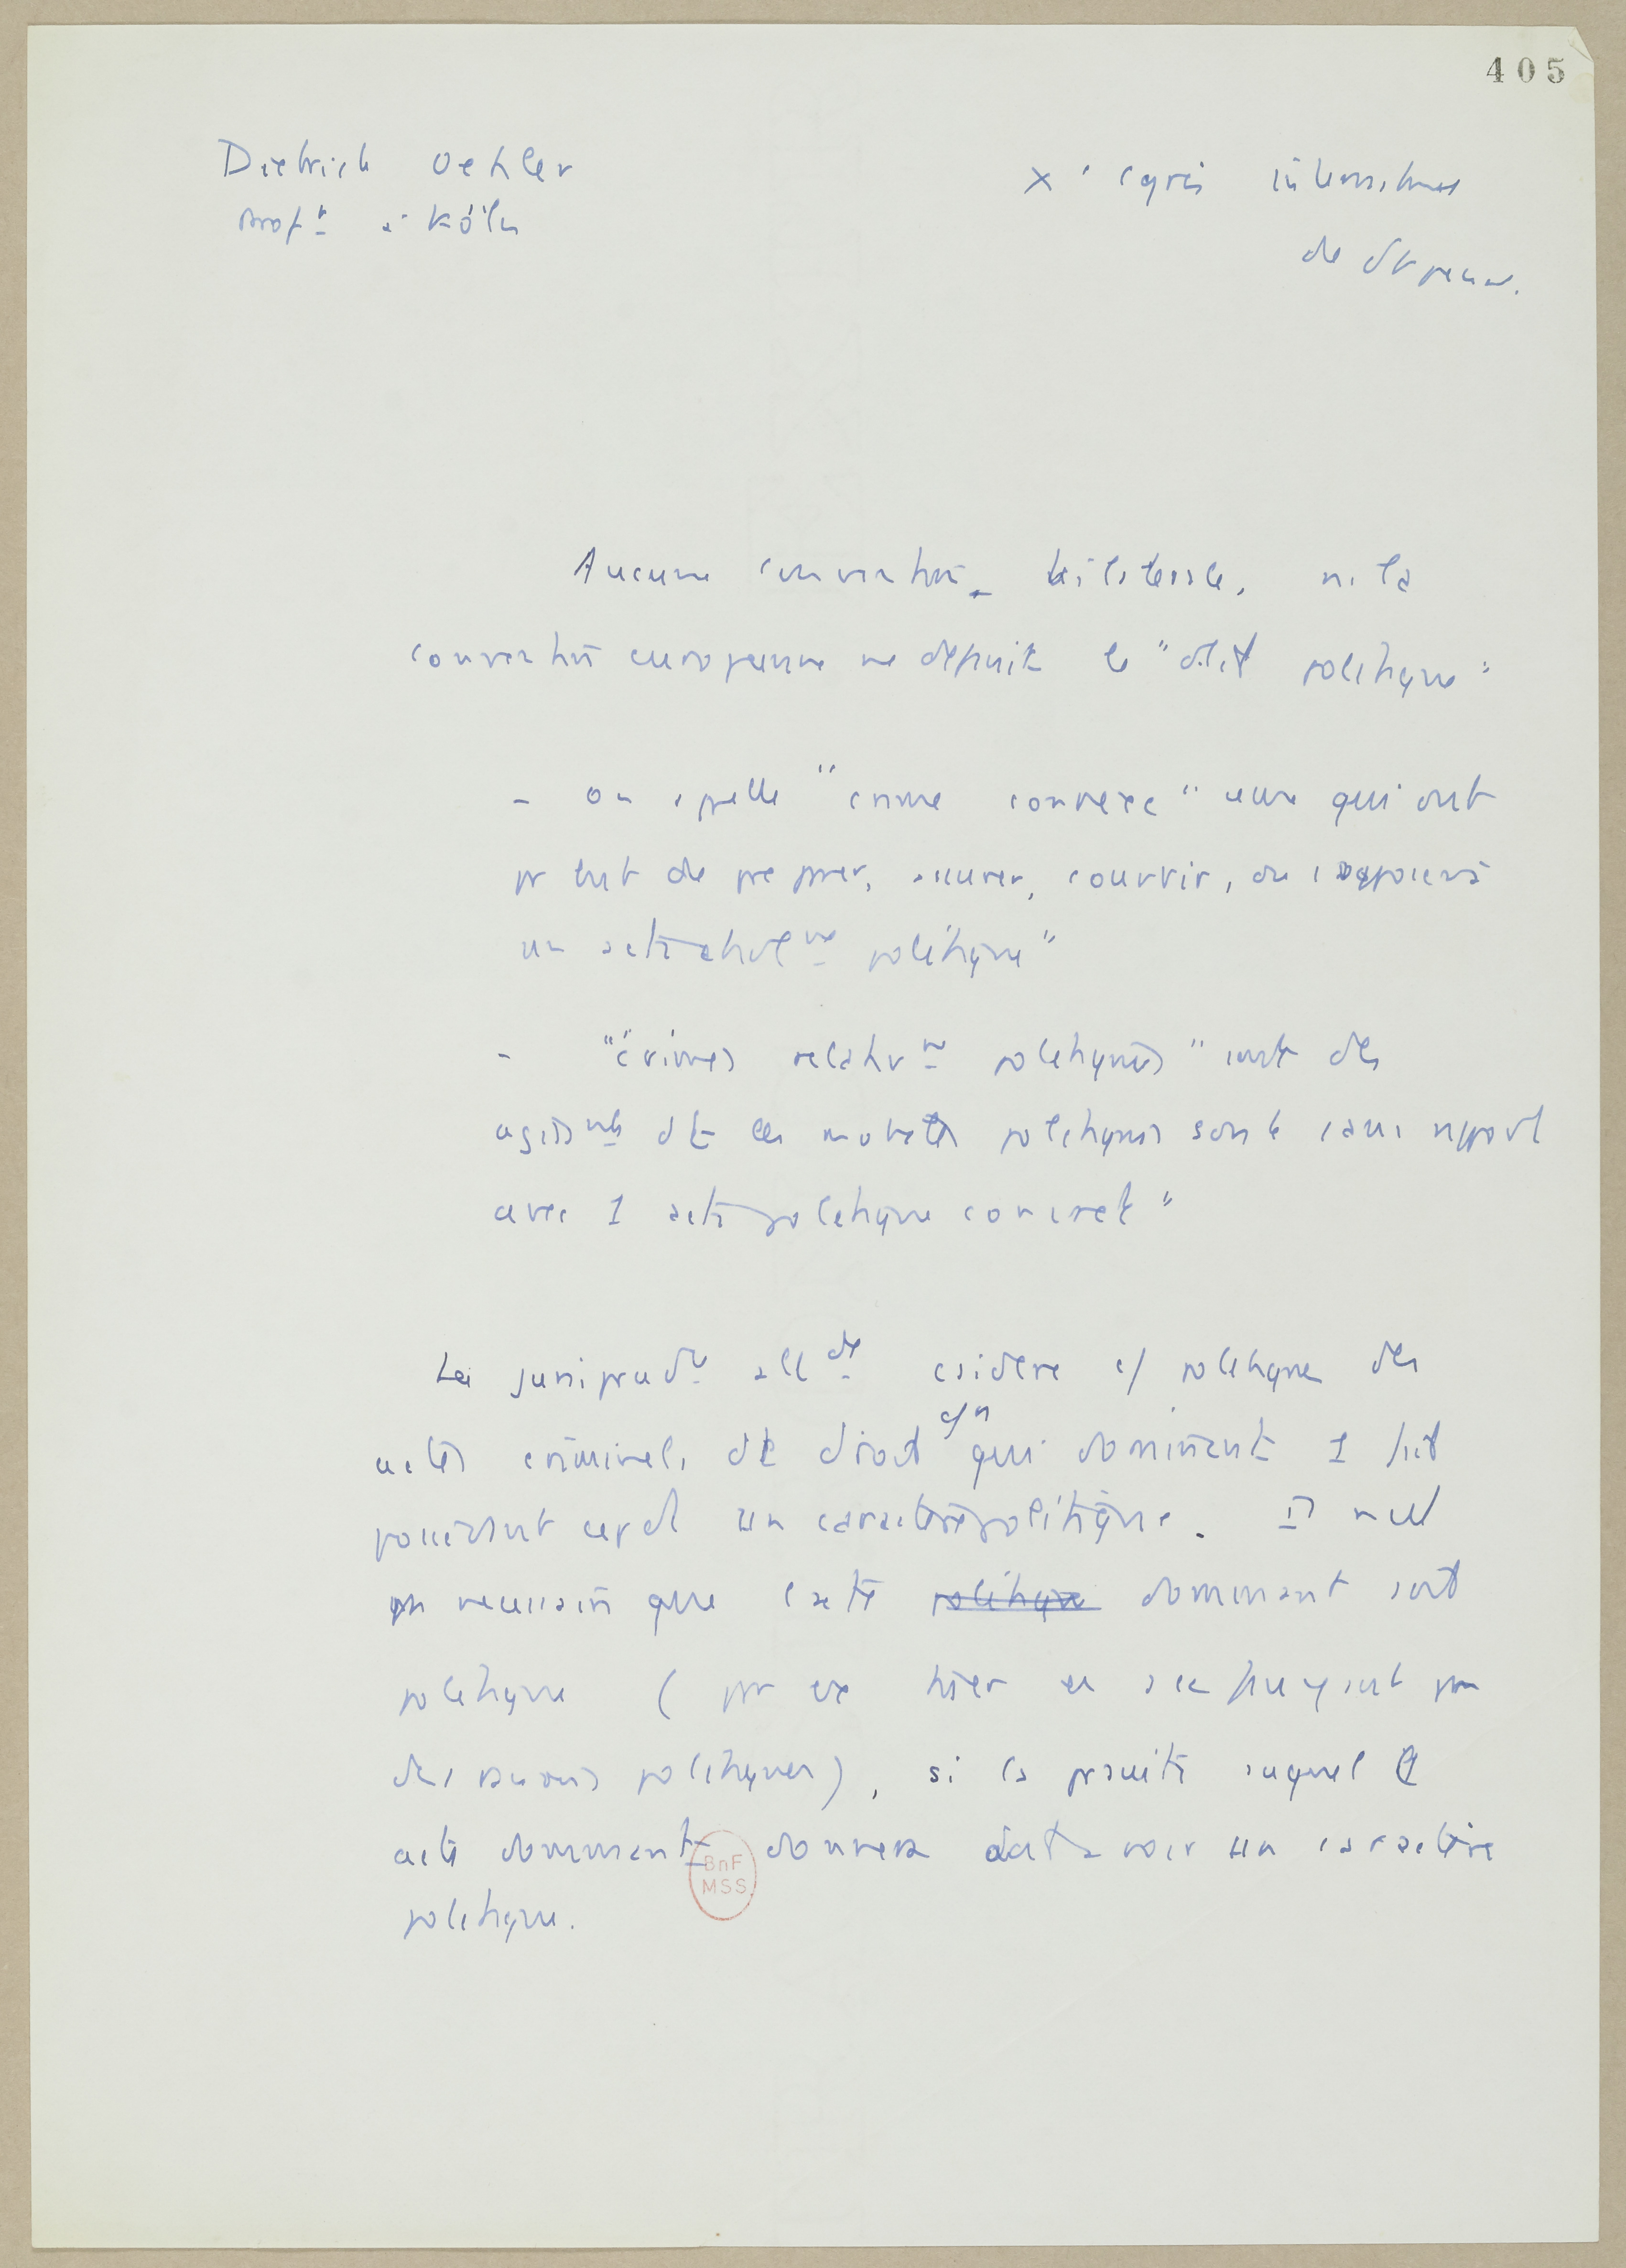 405
Dietrich Oehler
Profr à Köln
X° cgrès international
de dt pénal.
Aucune convention bilatérale, ni la
convention européenne ne définit le "délit politique"
- on appelle "crime connexe" ceux qui ont
pr but de préparer, assurer, couvrir,
un acte absolmt politique"
- "crimes relativt politiques" sont des
agissmts dt les motifs politiques sont sans rapport
avec 1 acte politique concret"
La jurisprudce allde csidère c/ politique des
actes criminels de droit c/n qui dominent 1 fait
possédant un caractère politique. Il
pas nécessaire que l'acte politique dominant soit
politique (par ex tuer en s'enfuyant pr
des raisons politiques), si la poursuite auquel l'
acte dominant donnera doit avoir un caractère
politique.
BnF
MSS